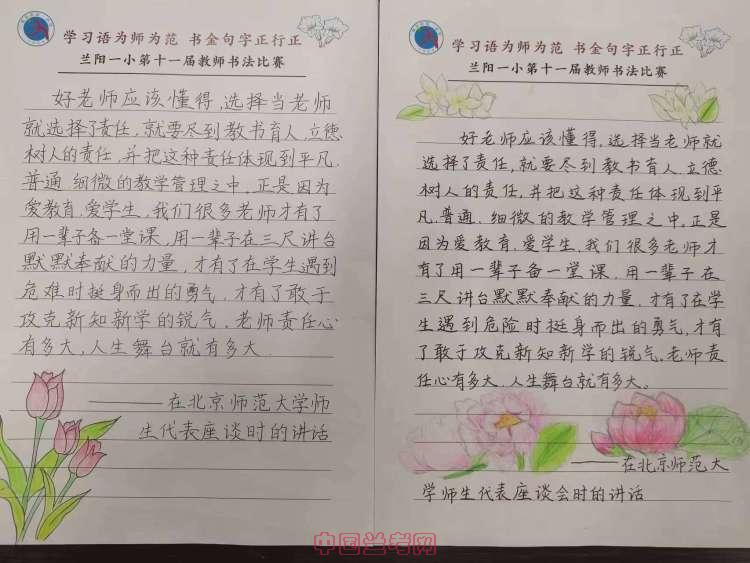 学习语为师为范 书金句字正行正
兰阳一小第十一届教师书法比赛
好老师应该懂得,选择当老师
就选择了责任,就要尽到教书育人、立德
树人的责任,并把这种责任体现到平凡、
普通、细微的教学管理之中,正是因为
爱教育、爱学生,我们很多老师才有了
用一辈子备一堂课,用一辈子在三尺讲台
默默奉献的力量,才有了在学生遇到
危难时挺身而出的勇气,才有了敢于
攻克新知新学的锐气,老师责任心
有多大,人生舞台就有多大
——在北京师范大学师
生代表座谈时的讲话
学习语为师为范 书金句字正行正
兰阳一小第十一届教师书法比赛
好老师应该懂得,选择当老师就
选择了责任,就要尽到教书育人、立德
树人的责任,并把这种责任体现到平
凡、普通、细微的教学管理之中,正是
因为爱教育、爱学生,我们很多老师才
有了用一辈子备一堂课、用一辈子在
三尺讲台默默奉献的力量,才有了在学
生遇到危险时挺身而出的勇气,才有
了敢于攻克新知新学的锐气,老师责
任心有多大,人生舞台就有多大。
——在北京师范大
学师生代表座谈会时的讲话
中国兰考网